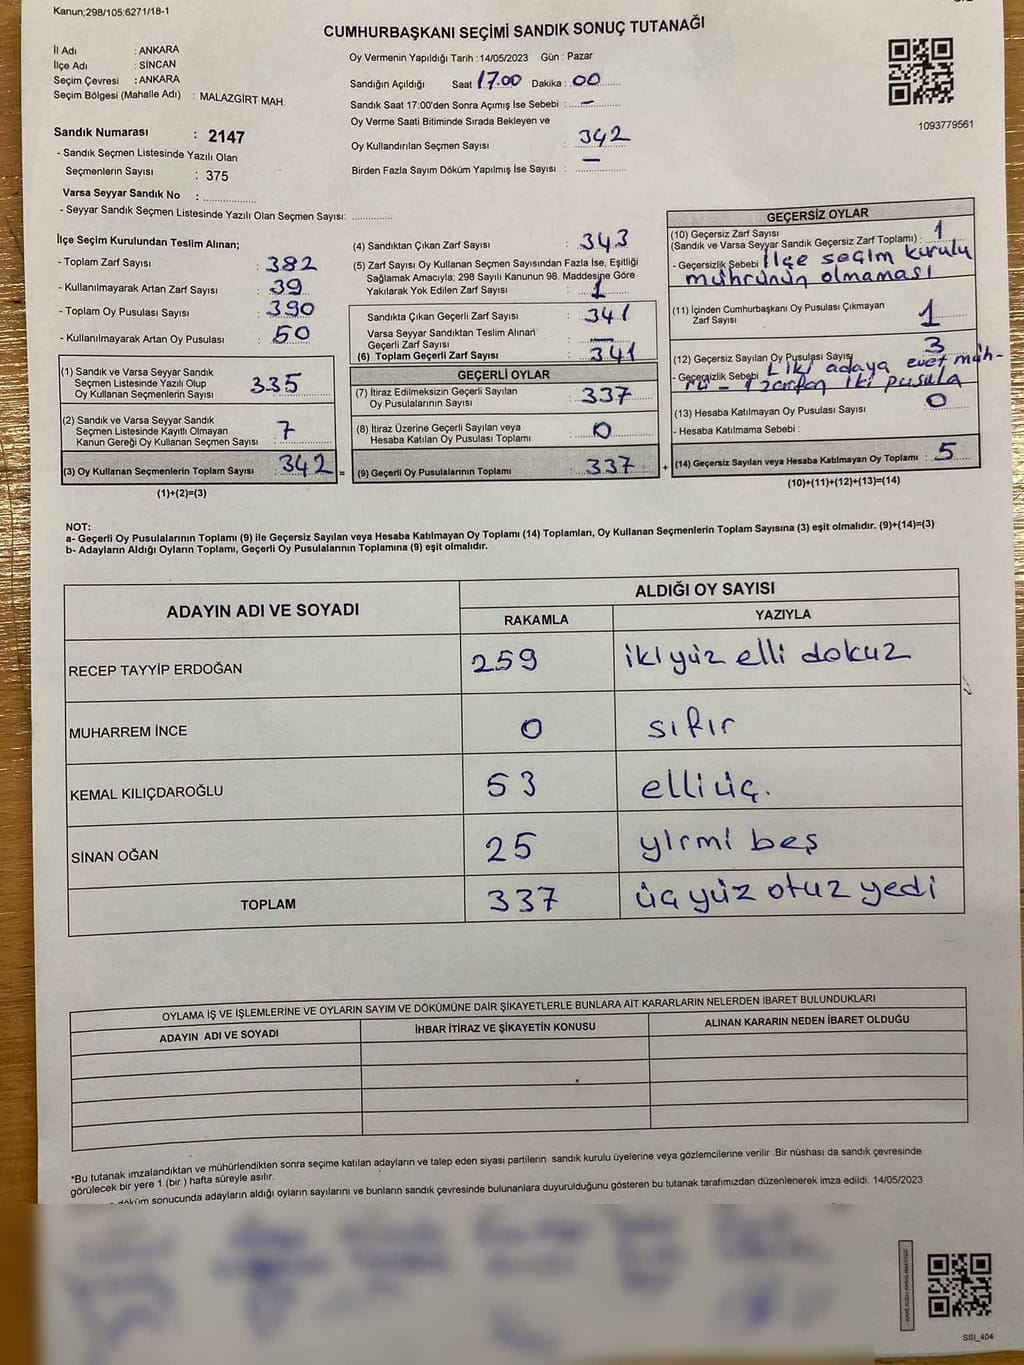 Kanun;298/105;6271/18-1
CUMHURBAŞKANI SEÇİMİ SANDIK SONUÇ TUTANAĞI
İl Adı : ANKARA
İlçe Adı : SİNCAN
Seçim Çevresi : ANKARA
Seçim Bölgesi (Mahalle Adı) : MALAZGİRT MAH.
Sandık Numarası : 2147
- Sandık Seçmen Listesinde Yazılı Olan
Seçmenlerin Sayısı : 375
Varsa Seyyar Sandık No :
- Seyyar Sandık Seçmen Listesinde Yazılı Olan Seçmen Sayısı:
Oy Vermenin Yapıldığı Tarih : 14/05/2023 Gün : Pazar
Sandığın Açıldığı Saat 17.00 Dakika : 00
Sandık Saat 17:00'den Sonra Açımış İse Sebebi : —
Oy Verme Saati Bitiminde Sırada Bekleyen ve
Oy Kullandırılan Seçmen Sayısı : 342
Birden Fazla Sayım Döküm Yapılmış İse Sayısı : —
1093779561
İlçe Seçim Kurulundan Teslim Alınan;
- Toplam Zarf Sayısı : 382
- Kullanılmayarak Artan Zarf Sayısı : 39
- Toplam Oy Pusulası Sayısı : 390
- Kullanılmayarak Artan Oy Pusulası : 50
(1) Sandık ve Varsa Seyyar Sandık
Seçmen Listesinde Yazılı Olup
Oy Kullanan Seçmenlerin Sayısı : 335
(2) Sandık ve Varsa Seyyar Sandık
Seçmen Listesinde Kayıtlı Olmayan
Kanun Gereği Oy Kullanan Seçmen Sayısı : 7
(3) Oy Kullanan Seçmenlerin Toplam Sayısı : 342 =
(1)+(2)=(3)
(4) Sandıktan Çıkan Zarf Sayısı : 343
(5) Zarf Sayısı Oy Kullanan Seçmen Sayısından Fazla İse, Eşitliği
Sağlamak Amacıyla; 298 Sayılı Kanunun 98. Maddesine Göre
Yakılarak Yok Edilen Zarf Sayısı : 1
Sandıkta Çıkan Geçerli Zarf Sayısı : 341
Varsa Seyyar Sandıktan Teslim Alınan
Geçerli Zarf Sayısı : —
(6) Toplam Geçerli Zarf Sayısı : 341
GEÇERLİ OYLAR
(7) İtiraz Edilmeksizin Geçerli Sayılan
Oy Pusulalarının Sayısı : 337
(8) İtiraz Üzerine Geçerli Sayılan veya
Hesaba Katılan Oy Pusulası Toplamı : 0
(9) Geçerli Oy Pusulalarının Toplamı : 337 +
GEÇERSİZ OYLAR
(10) Geçersiz Zarf Sayısı
(Sandık ve Varsa Seyyar Sandık Geçersiz Zarf Toplamı) : 1
- Geçersizlik Sebebi : İlçe seçim kurulu
mührünün olmaması
(11) İçinden Cumhurbaşkanı Oy Pusulası Çıkmayan
Zarf Sayısı : 1
(12) Geçersiz Sayılan Oy Pusulası Sayısı : 3
- Geçersizlik Sebebi : iki adaya evet müh-
rü - 1 zarftan iki pusula
(13) Hesaba Katılmayan Oy Pusulası Sayısı : 0
- Hesaba Katılmama Sebebi :
(14) Geçersiz Sayılan veya Hesaba Katılmayan Oy Toplamı : 5
(10)+(11)+(12)+(13)=(14)
NOT:
a- Geçerli Oy Pusulalarının Toplamı (9) ile Geçersiz Sayılan veya Hesaba Katılmayan Oy Toplamı (14) Toplamları, Oy Kullanan Seçmenlerin Toplam Sayısına (3) eşit olmalıdır. (9)+(14)=(3)
b- Adayların Aldığı Oyların Toplamı, Geçerli Oy Pusulalarının Toplamına (9) eşit olmalıdır.
ADAYIN ADI VE SOYADI ALDIĞI OY SAYISI
RAKAMLA YAZIYLA
RECEP TAYYİP ERDOĞAN 259 iki yüz elli dokuz
MUHARREM İNCE 0 sıfır
KEMAL KILIÇDAROĞLU 53 elli üç.
SİNAN OĞAN 25 yirmi beş
TOPLAM 337 üç yüz otuz yedi
OYLAMA İŞ VE İŞLEMLERİNE VE OYLARIN SAYIM VE DÖKÜMÜNE DAİR ŞİKAYETLERLE BUNLARA AİT KARARLARIN NELERDEN İBARET BULUNDUKLARI
ADAYIN ADI VE SOYADI İHBAR İTİRAZ VE ŞİKAYETİN KONUSU ALINAN KARARIN NEDEN İBARET OLDUĞU
*Bu tutanak imzalandıktan ve mühürlendikten sonra seçime katılan adayların ve talep eden siyasi partilerin sandık kurulu üyelerine veya gözlemcilerine verilir .Bir nüshası da sandık çevresinde
görülecek bir yere 1 (bir ) hafta süreyle asılır.
döküm sonucunda adayların aldığı oyların sayılarını ve bunların sandık çevresinde bulunanlara duyurulduğunu gösteren bu tutanak tarafımızdan düzenlenerek imza edildi. 14/05/2023
SSI_404